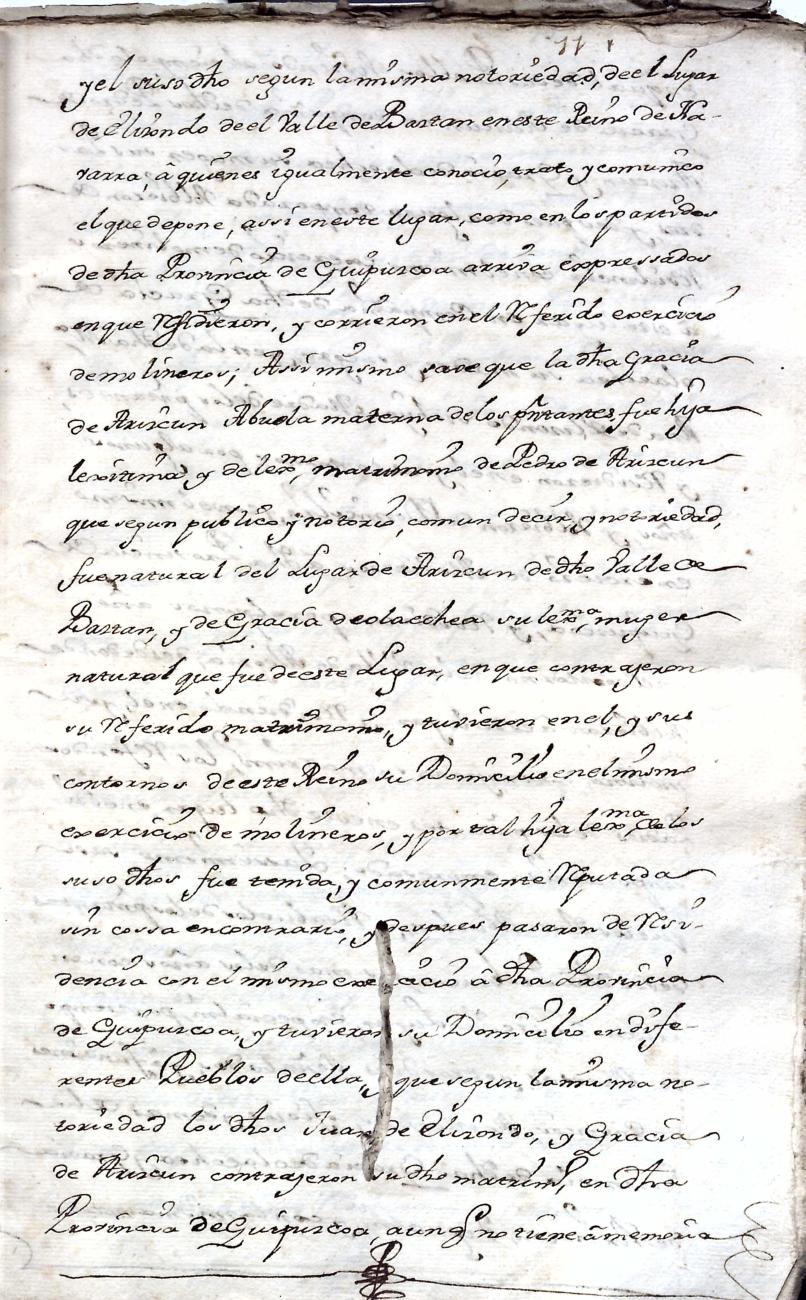 11
y el suso dho segun la misma notoriedad, de el Lugar
de Elisondo de el Valle de Bastan en este Reino de Na-
varra, â quienes igualmente conocio, trato, y comunico
el que depone, assi en este lugar, como en los partidos
de dha Provincia de Guipuscoa arriva expressados
en que Residieron, y corrieron en el Referido exercicio
de molineros; Assi mismo save que la dha Gracia
de Ariscun Abuela materna de los pñtantes, fue hija
lexitima, y de lexmo, matrimonio de Pedro de Ariscun
que segun publico y notorio, comun decir, y notoriedad,
fue natural del Lugar de Ariscun de dho Valle de
Bastan, y de Gracia de olaechea su lexma, muger
natural que fue de este Lugar, en que contrajeron
su Referido matrimonio, y tuvieron en el, y sus
contornos de este Reino su Domicilio en el mismo
exercicio de molineros, y por tal hija lexma, de los
suso dhos fue tenida, y comunmente Reputada
sin cossa en contrario, y despues pasaron de Resi-
dencia con el mismo exercicio â dha Provincia
de Guipuscoa, y tuvieron su Domicilio en dife-
rentes Pueblos de ella, que segun la misma no-
toriedad los dhos Juan de Elisondo, y Gracia
de Ariscun contrajeron su dho matrim.l en dha
Provincia de Guipuscoa, aunq no tiene â memoria